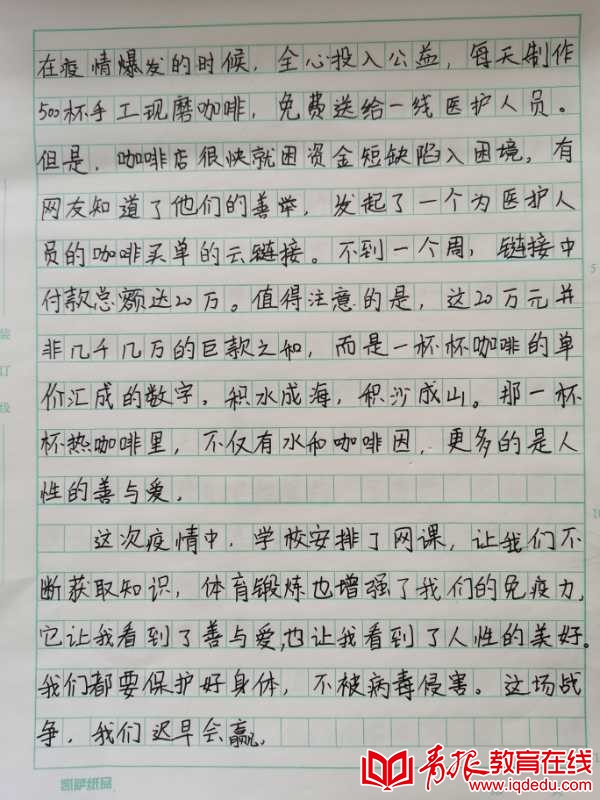 在疫情爆发的时候，全心投入公益，每天制作
500杯手工现磨咖啡，免费送给一线医护人员。
但是，咖啡店很快就因资金短缺陷入困境，有
网友知道了他们的善举，发起了一个为医护人
员的咖啡买单的云链接。不到一个周，链接中
付款总额达20万。值得注意的是，这20万元并
非几千几万的巨款之和，而是一杯杯咖啡的单
价汇成的数字。积水成海，积沙成山。那一杯
杯热咖啡里，不仅有水和咖啡因，更多的是人
性的善与爱。
这次疫情中，学校安排了网课，让我们不
断获取知识，体育锻炼也增强了我们的免疫力，
它让我看到了善与爱，也让我看到了人性的美好。
我们都要保护好身体，不被病毒侵害。这场战
争，我们迟早会赢。
装
订
线
5
10
凯萨纸品
青报教育在线
www.iqdedu.com